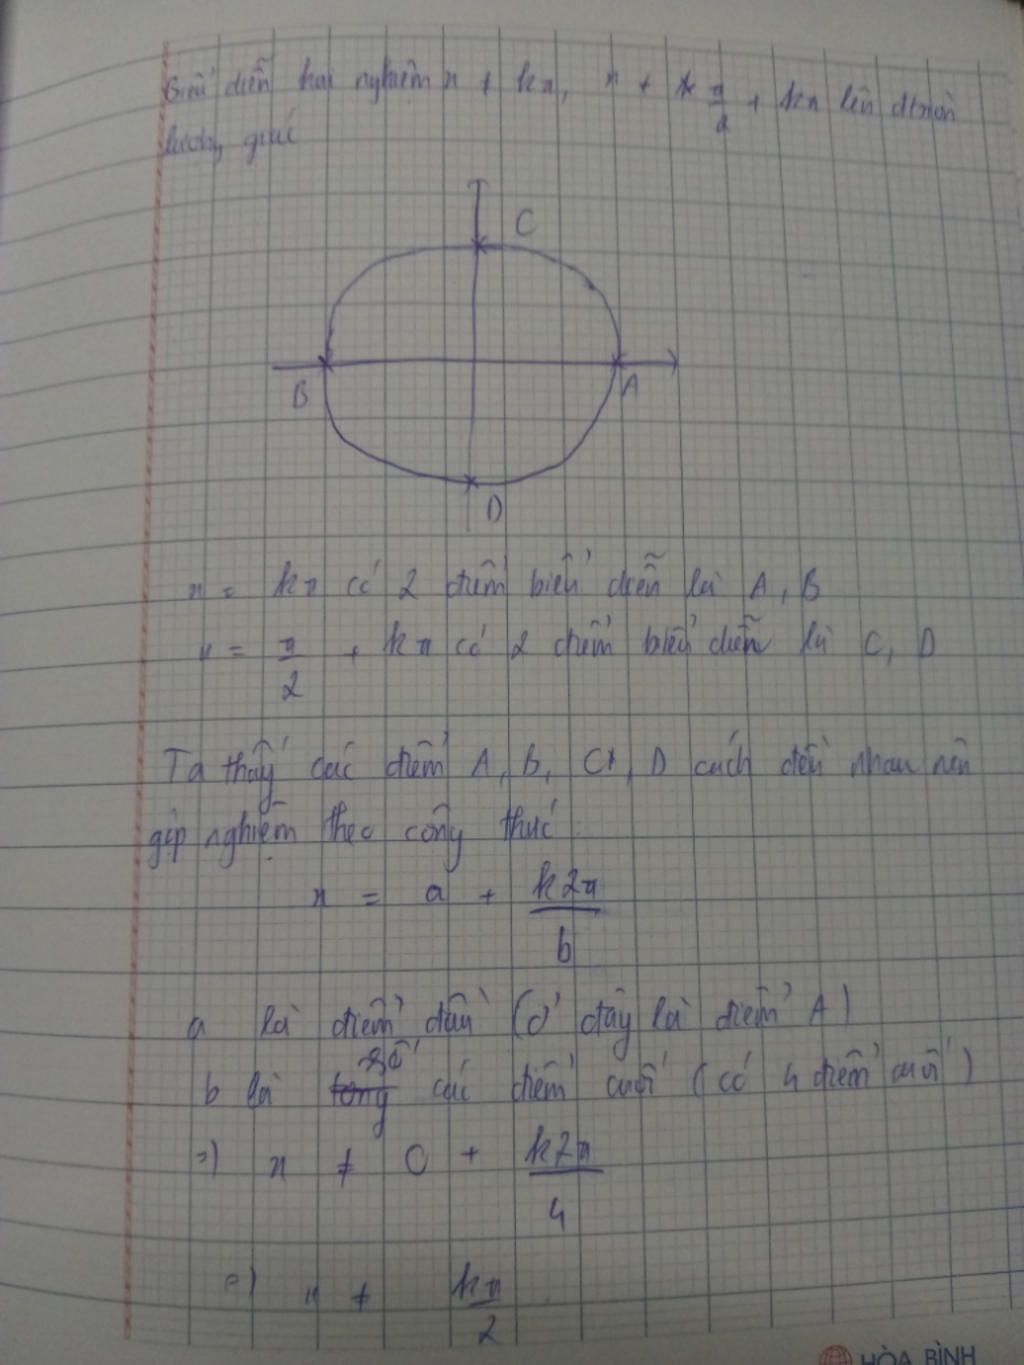 Biểu diễn hai nghiệm x ≠ kπ, x ≠ π/2 + kπ lên đtròn
lượng giác
C
B
A
D
x = kπ có 2 điểm biểu diễn là A, B
x = π/2 + kπ có 2 điểm biểu diễn là C, D
Ta thấy các điểm A, B, C, D cách đều nhau nên
gộp nghiệm theo công thức:
x = a + k2π/b
a là điểm đầu (ở đây là điểm A)
số
b là tổng các điểm cuối (có 4 điểm cuối)
=) x ≠ 0 + k2π/4
=) x ≠ kπ/2
HÒA BÌNH